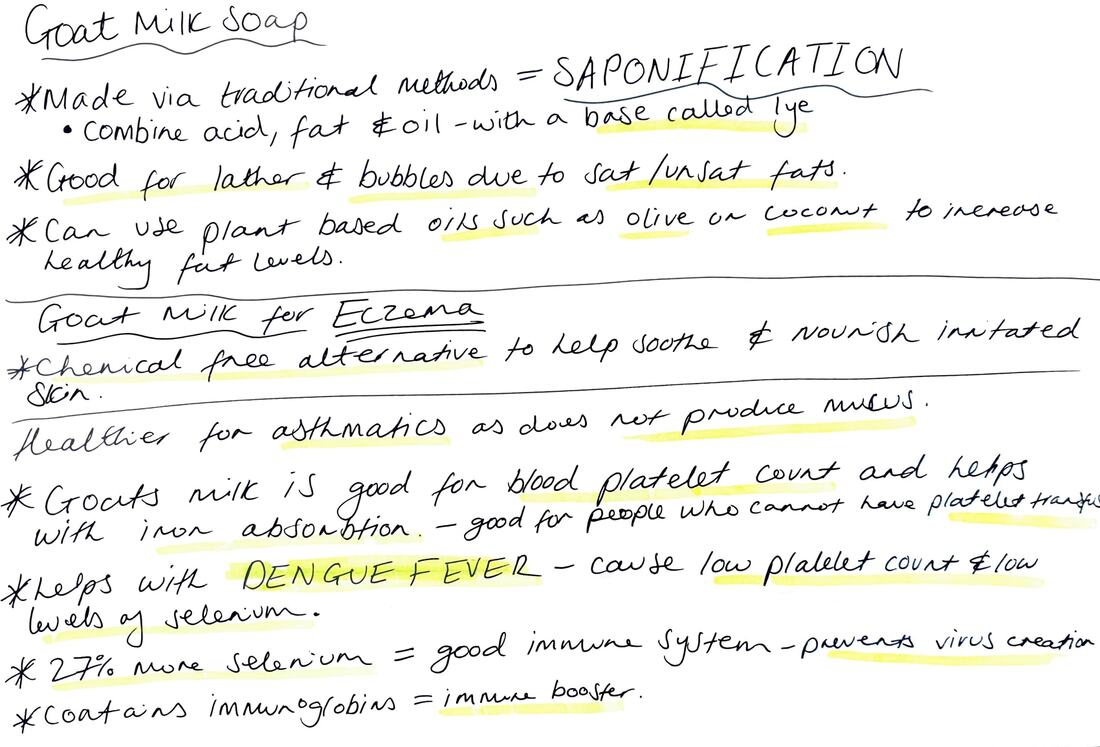 Goat Milk Soap
*Made via traditional methods = SAPONIFICATION
• combine acid, fat & oil - with a base called lye
*Good for lather & bubbles due to sat/unsat fats.
*Can use plant based oils such as olive or coconut to increase
healthy fat levels.
Goat Milk for Eczema
*Chemical free alternative to help soothe & nourish irritated
skin.
Healthier for asthmatics as does not produce mucus.
* Goats milk is good for blood platelet count and helps
with iron absorbtion. - good for people who cannot have platelet transfus
*helps with DENGUE FEVER - cause low platelet count & low
levels of selenium.
* 27% more selenium = good immune system - prevents virus creation
*Contains immunogrobins = immune booster.